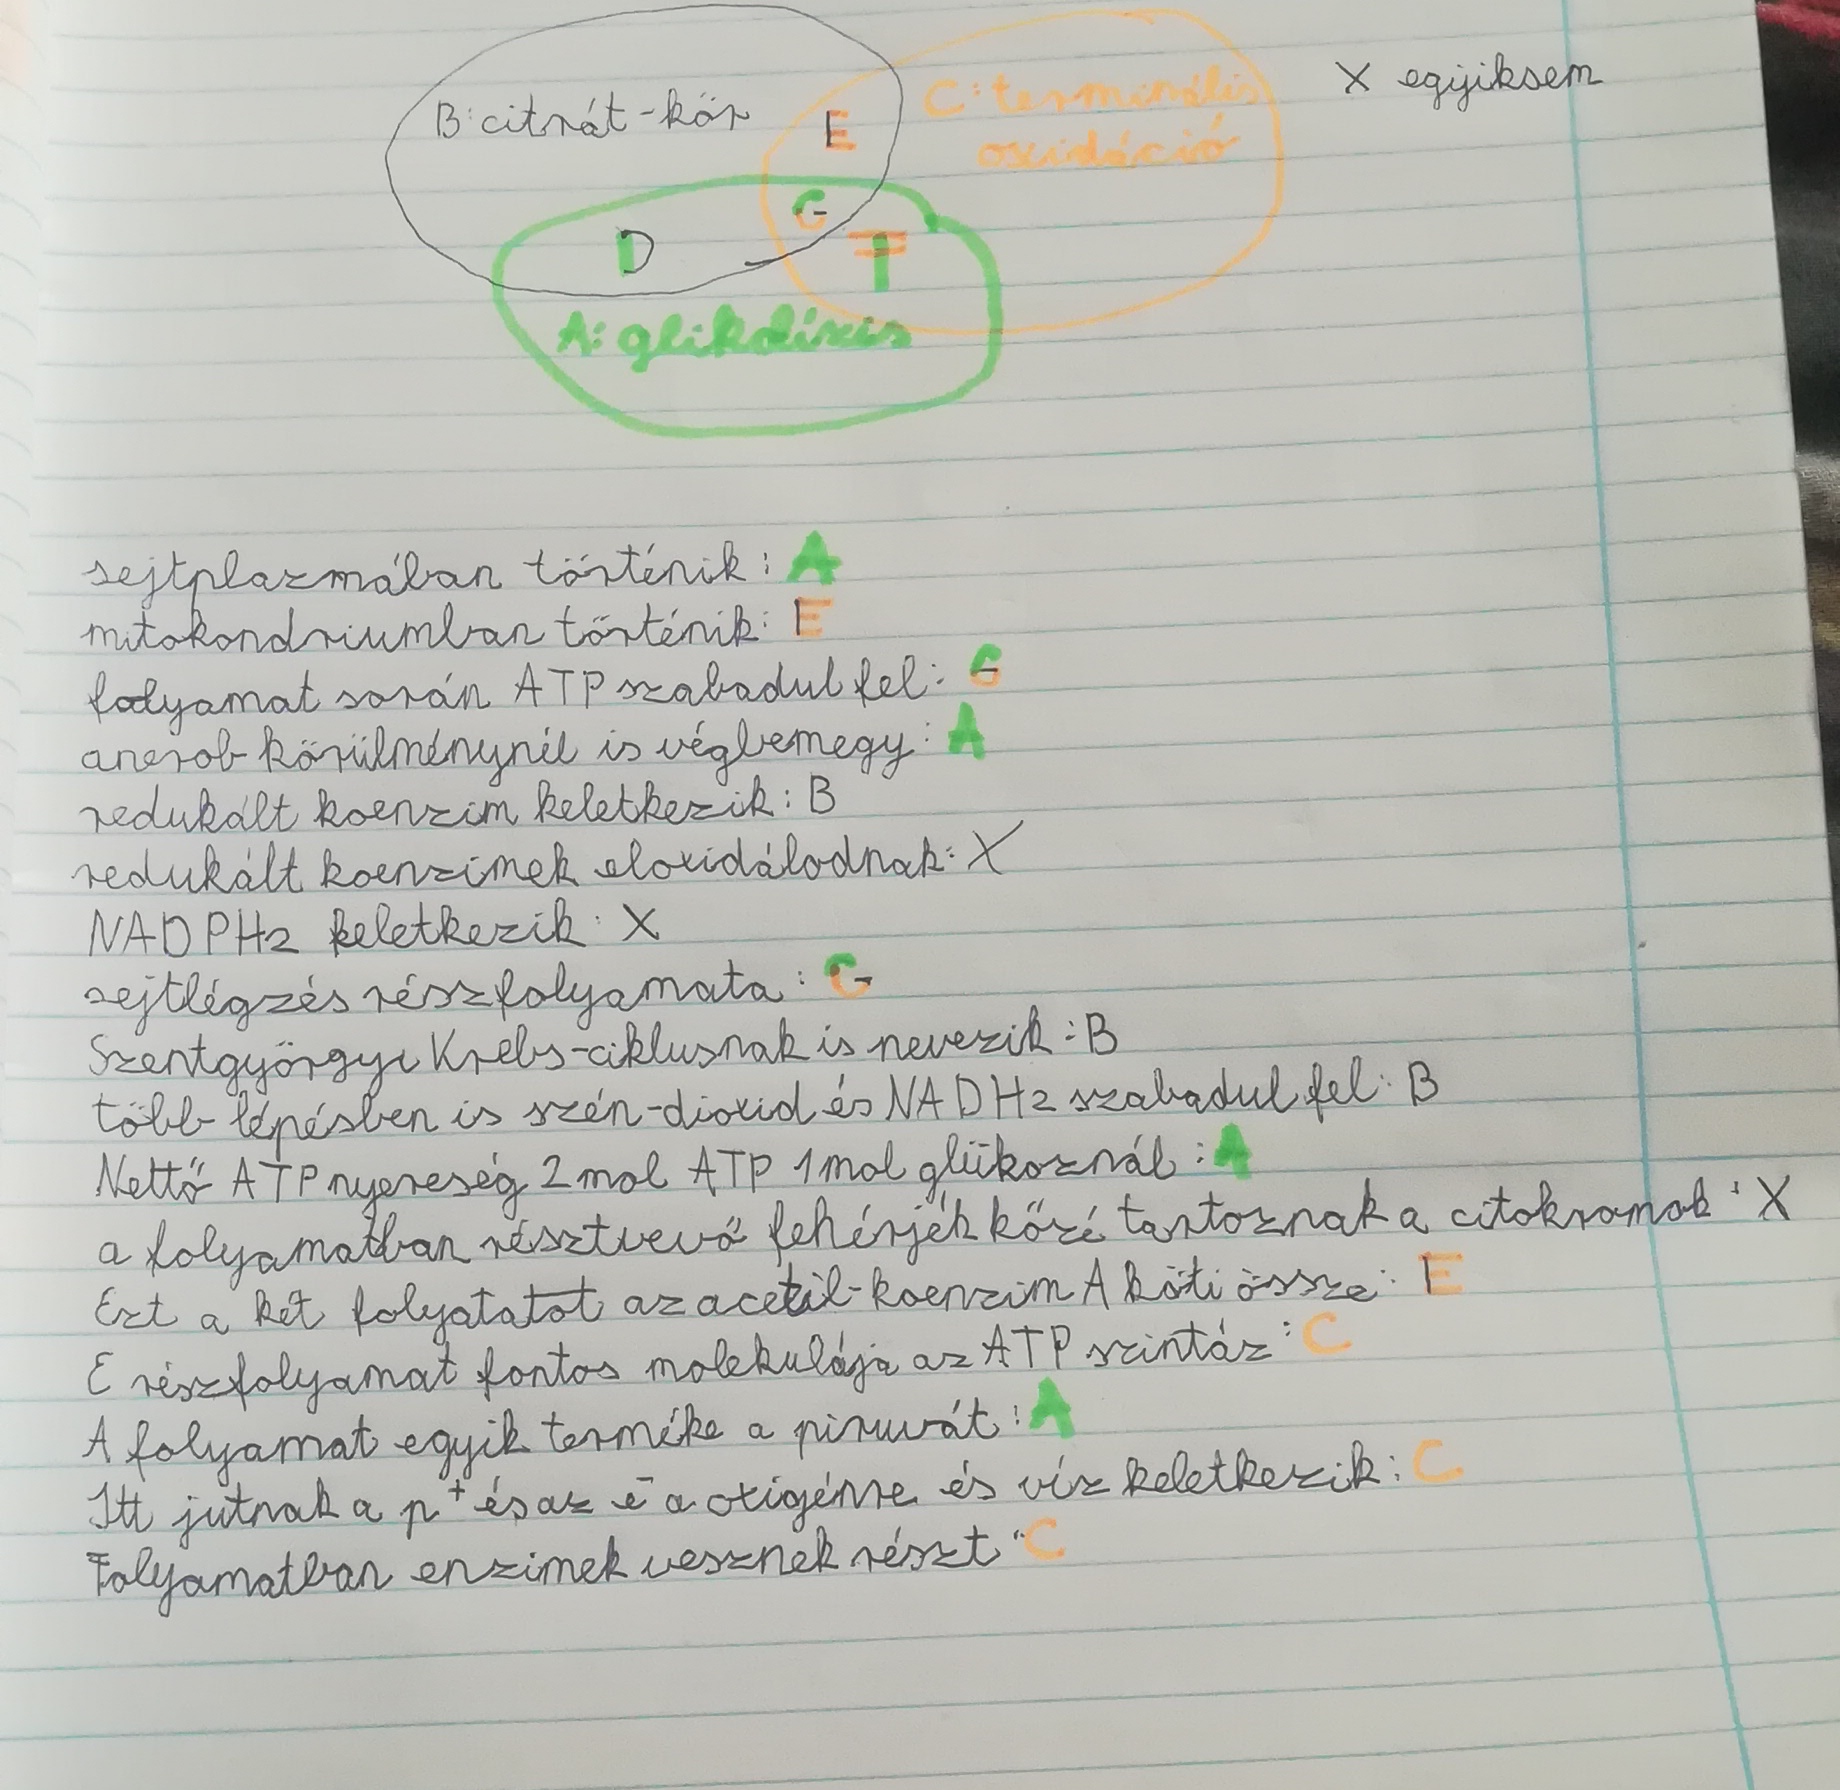 B: citrát-kör
E
C: terminális
oxidáció
X egyiksem
G
D
F
A: glikolízis
sejtplazmában történik: A
mitokondriumban történik: E
folyamat során ATP szabadul fel: G
anerob körülménynél is végbemegy: A
redukált koenzim keletkezik: B
redukált koenzimek eloxidálodnak: X
NADPH2 keletkezik: X
sejtlégzés részfolyamata: G
Szentgyörgyi Krebs-ciklusnak is nevezik: B
több lépésben is szén-dioxid és NADH2 szabadul fel: B
Nettó ATP nyereség 2 mol ATP 1 mol glükoznál: A
a folyamatban résztvevő fehérjék közé tartoznak a citokromok: X
Ezt a két folyatatot az acetil-koenzim A köti össze: E
E részfolyamat fontos molekulája az ATP szintáz: C
A folyamat egyik terméke a piruvát: A
Itt jutnak a p+ és az e- a oxigénre és víz keletkezik: C
Folyamatban enzimek vesznek részt: C